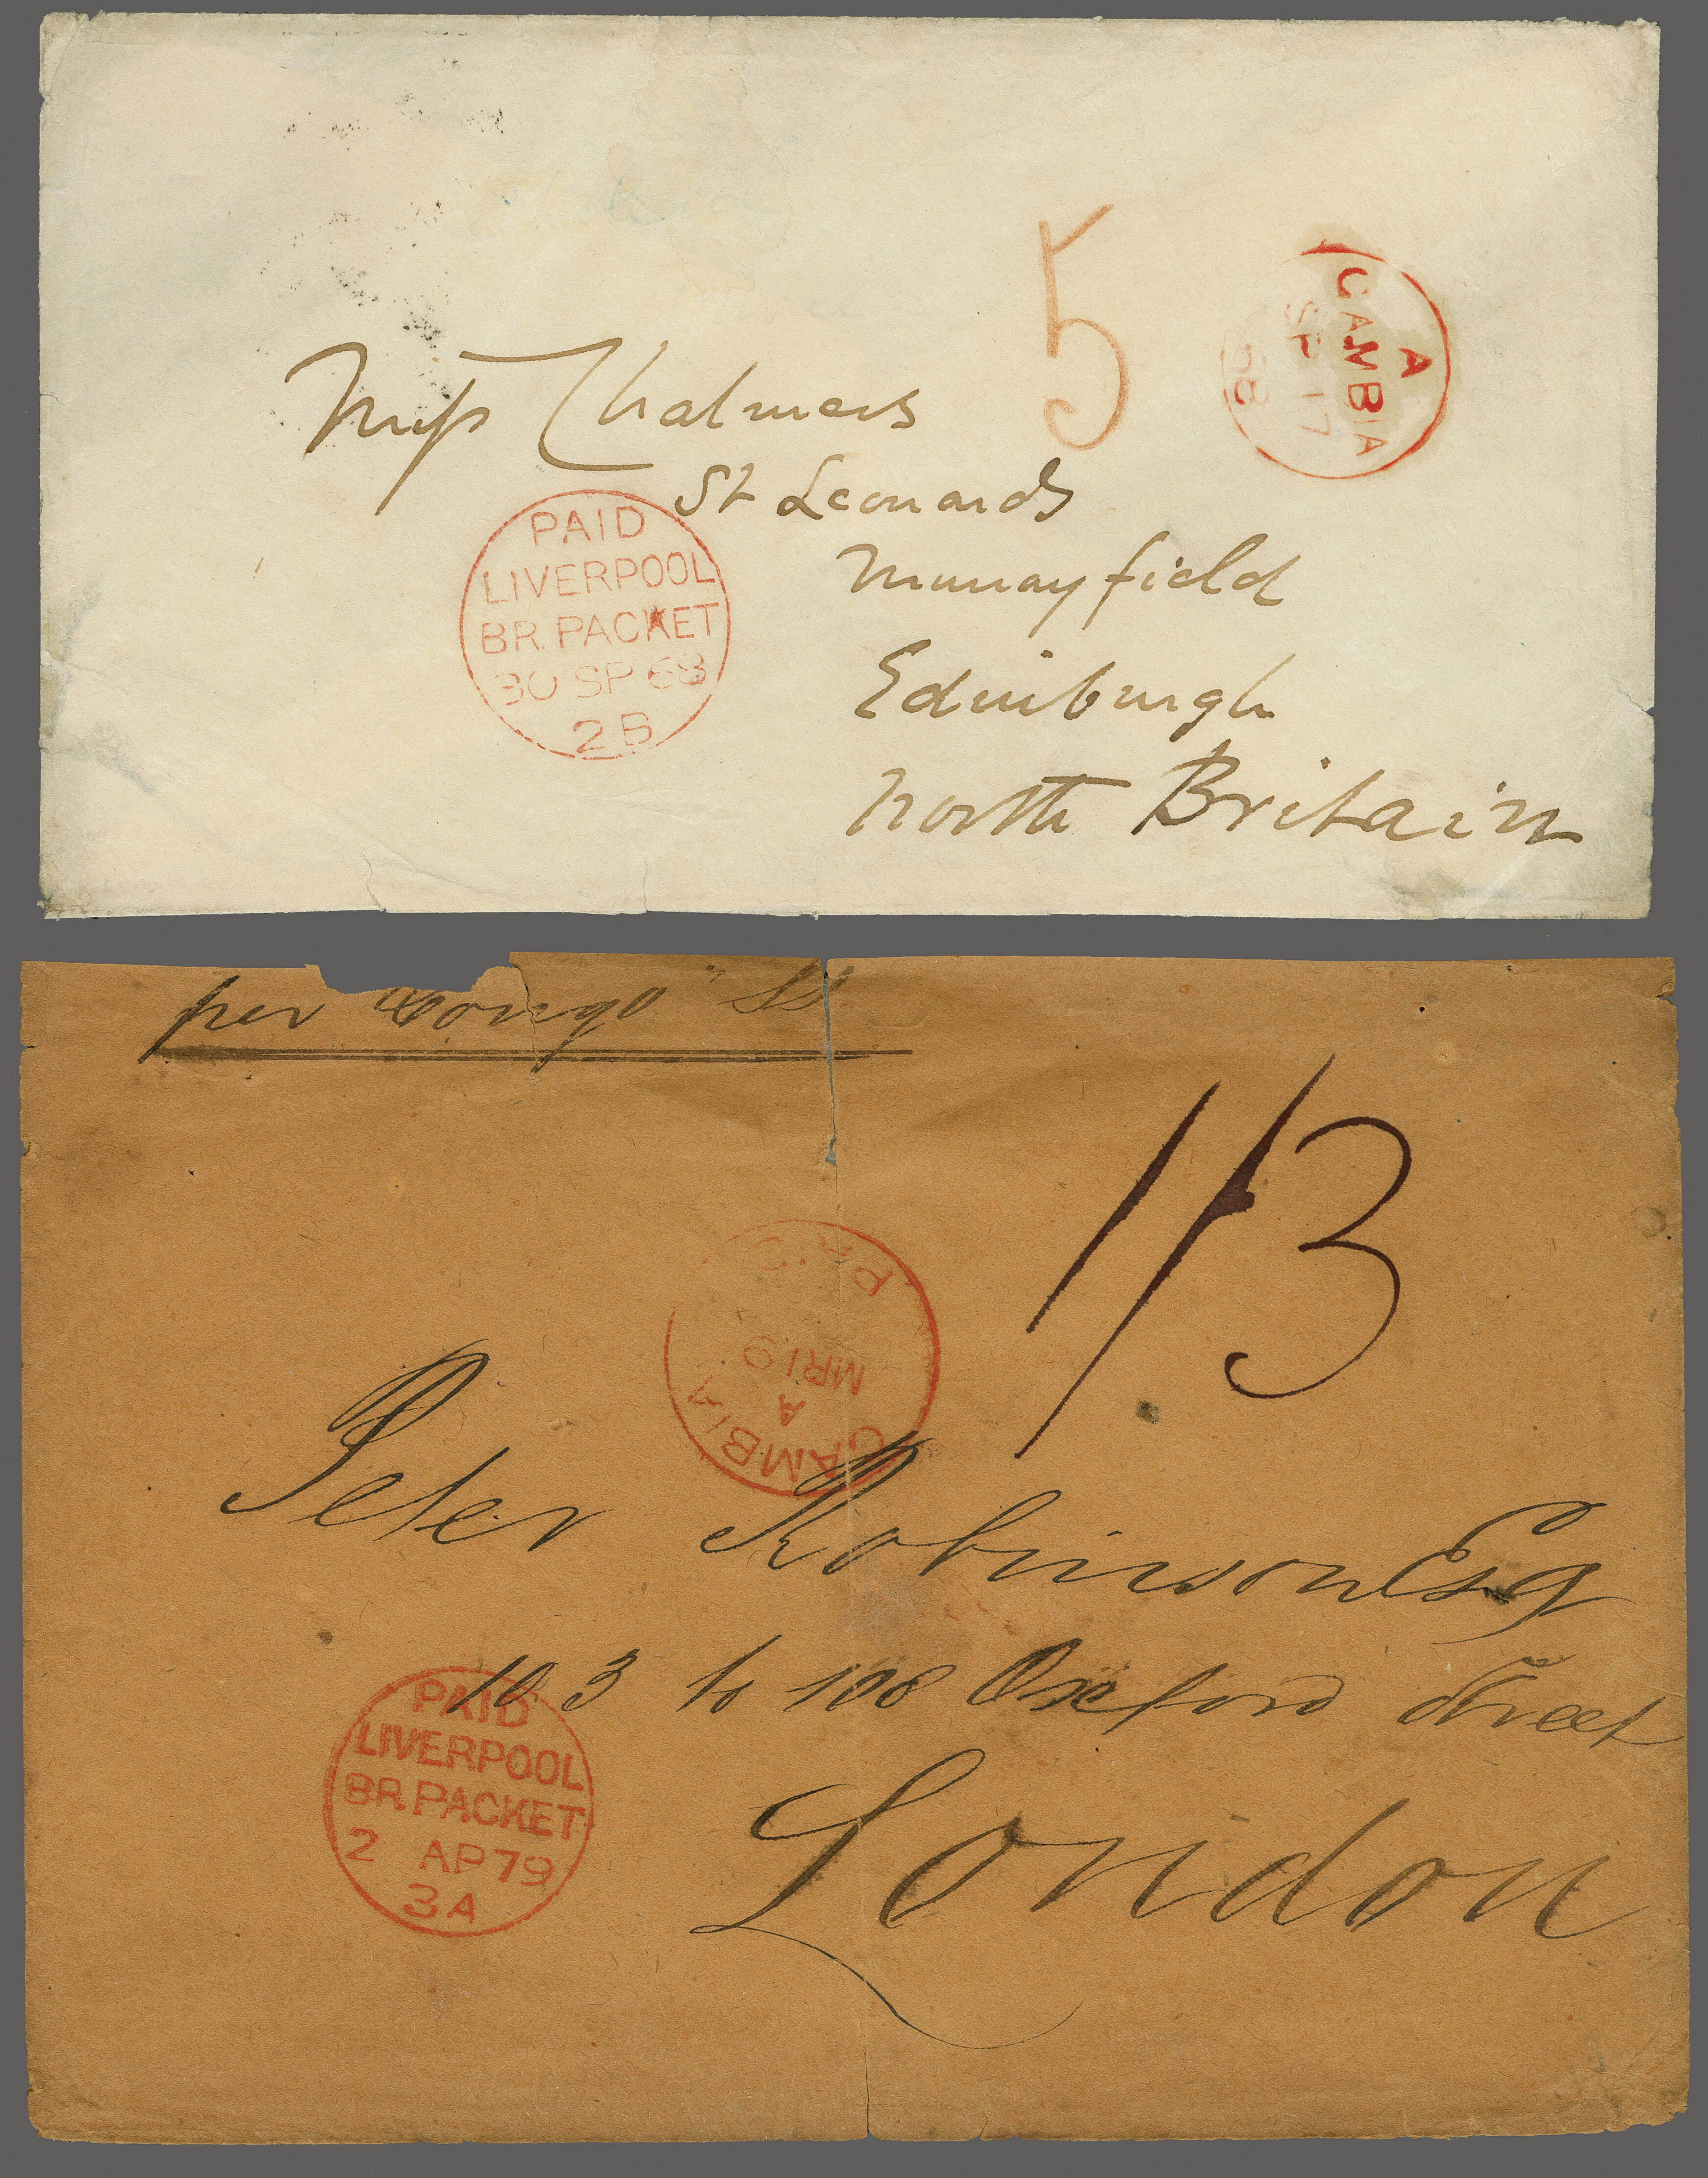 5
A
GAMBIA
SP 17
68
Miss Chalmers
St Leonards
Murrayfield
Edinburgh
North Britain
PAID
LIVERPOOL
BR. PACKET
30 SP 68
2 B
per "Congo" SS
1/3
PAID
MR 19
A
GAMBIA
Peter Robinson Esq
103 to 108 Oxford Street
London
PAID
LIVERPOOL
BR. PACKET
2 AP 79
3 A